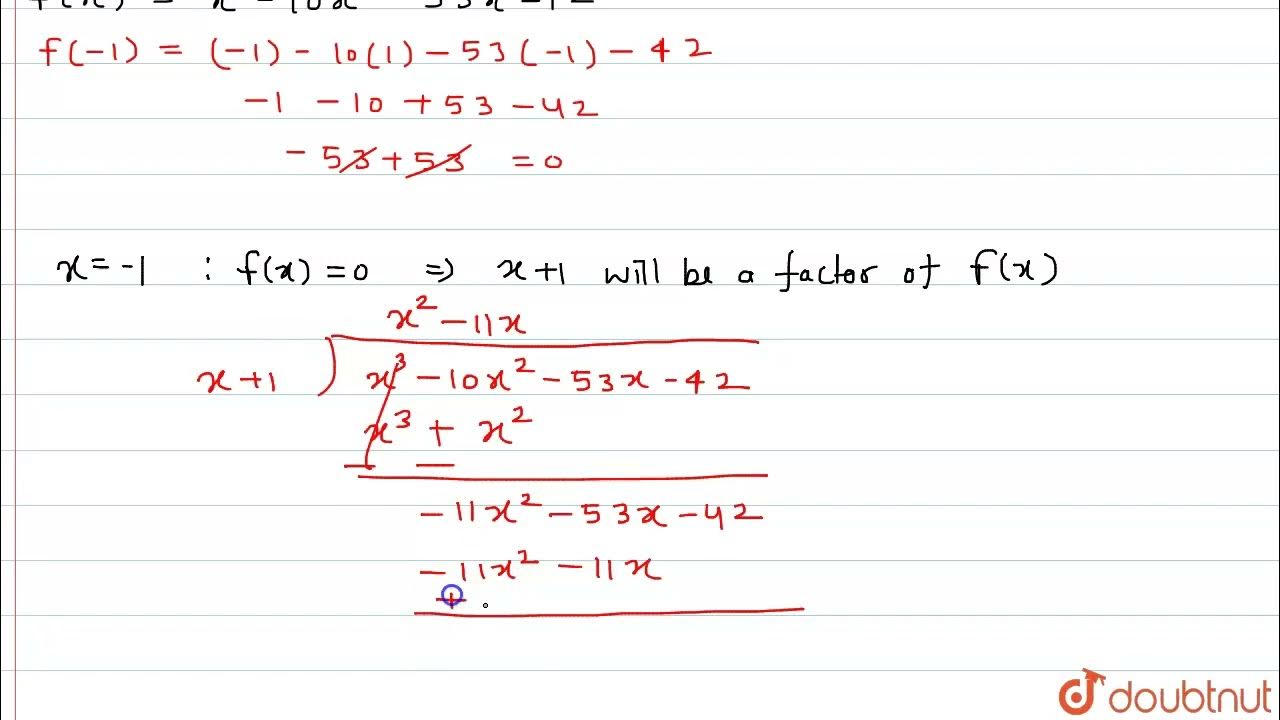 f(x) = x - 10x - 53x - 42
f(-1) = (-1) - 10(1) - 53(-1) - 42
-1 - 10 + 53 - 42
- 53 + 53 = 0
x = -1 : f(x) = 0 ⇒ x+1 will be a factor of f(x)
x² - 11x
x+1 ) x³ - 10x² - 53x - 42
x³ + x²
— —
- 11x² - 53x - 42
- 11x² - 11x
+
doubtnut